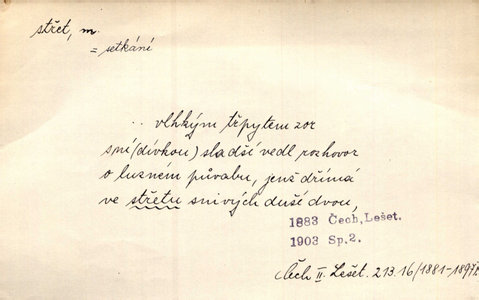 střet, m.
= setkání
.. vlhkým třpytem zor
s ní (dívkou) sladší vedl rozhovor
o luzném půvabu, jenž dřímá
ve střetu snivých duší dvou,
1883 Čech, Lešet.
1903 Sp. 2.
Čech II. Lešet. 213.16/1881-1897